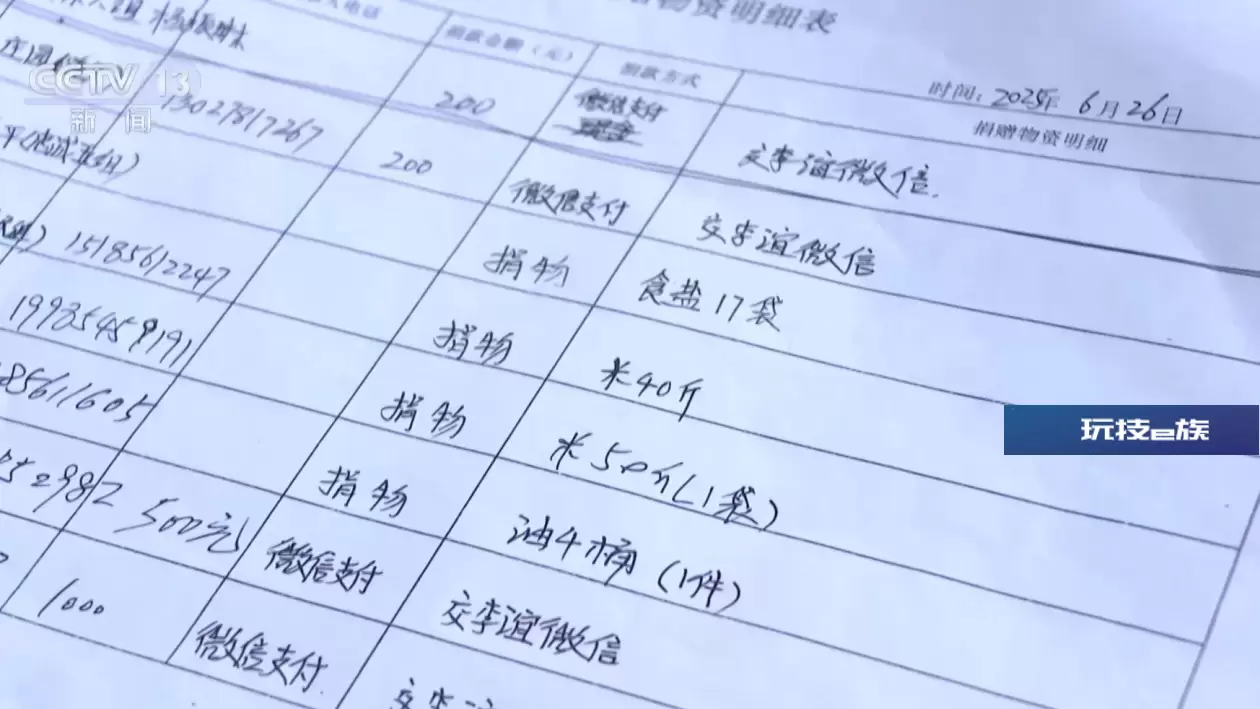 物资明细表
时间：2025年 6月26日
人电话 捐款金额（元） 捐款方式 捐赠物资明细
200 微信支付 交李谊微信.
13027817267 200 微信支付 交李谊微信
捐物 食盐17袋
15185612247 捐物 米40斤
19935459191 捐物 米50斤(1袋)
85611605 捐物 油4桶(1件)
52982 500元 微信支付 交李谊微信
1000 微信支付 交李
CCTV 13
新闻
玩技e族